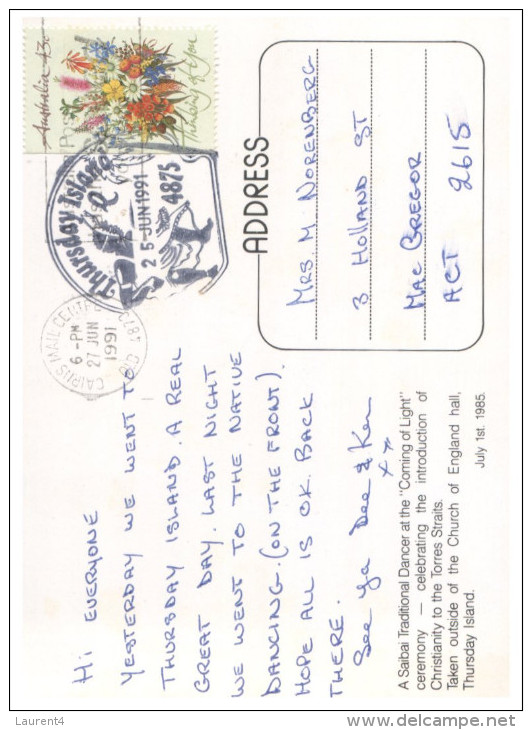 Hi EVERYONE
YESTERDAY WE WENT TO
THURSDAY ISLAND. A REAL
GREAT DAY. LAST NIGHT
WE WENT TO THE NATIVE
DANCING. (ON THE FRONT).
HOPE ALL IS OK. BACK
THERE.
See ya Dee & Ken
xx
A Saibai Traditional Dancer at the "Coming of Light"
ceremony — celebrating the introduction of
Christianity to the Torres Straits.
Taken outside of the Church of England hall,
Thursday Island.
July 1st. 1985.
Australia 43c
Thinking of You
Thursday Island
25-JUN 1991
4875
CAIRNS MAIL CENTRE
6-PM
27 JUN
1991
ADDRESS
MRS M NORENBERG
3 HOLLAND ST
MAC GREGOR
ACT 2615
Laurent4
www.delcampe.net